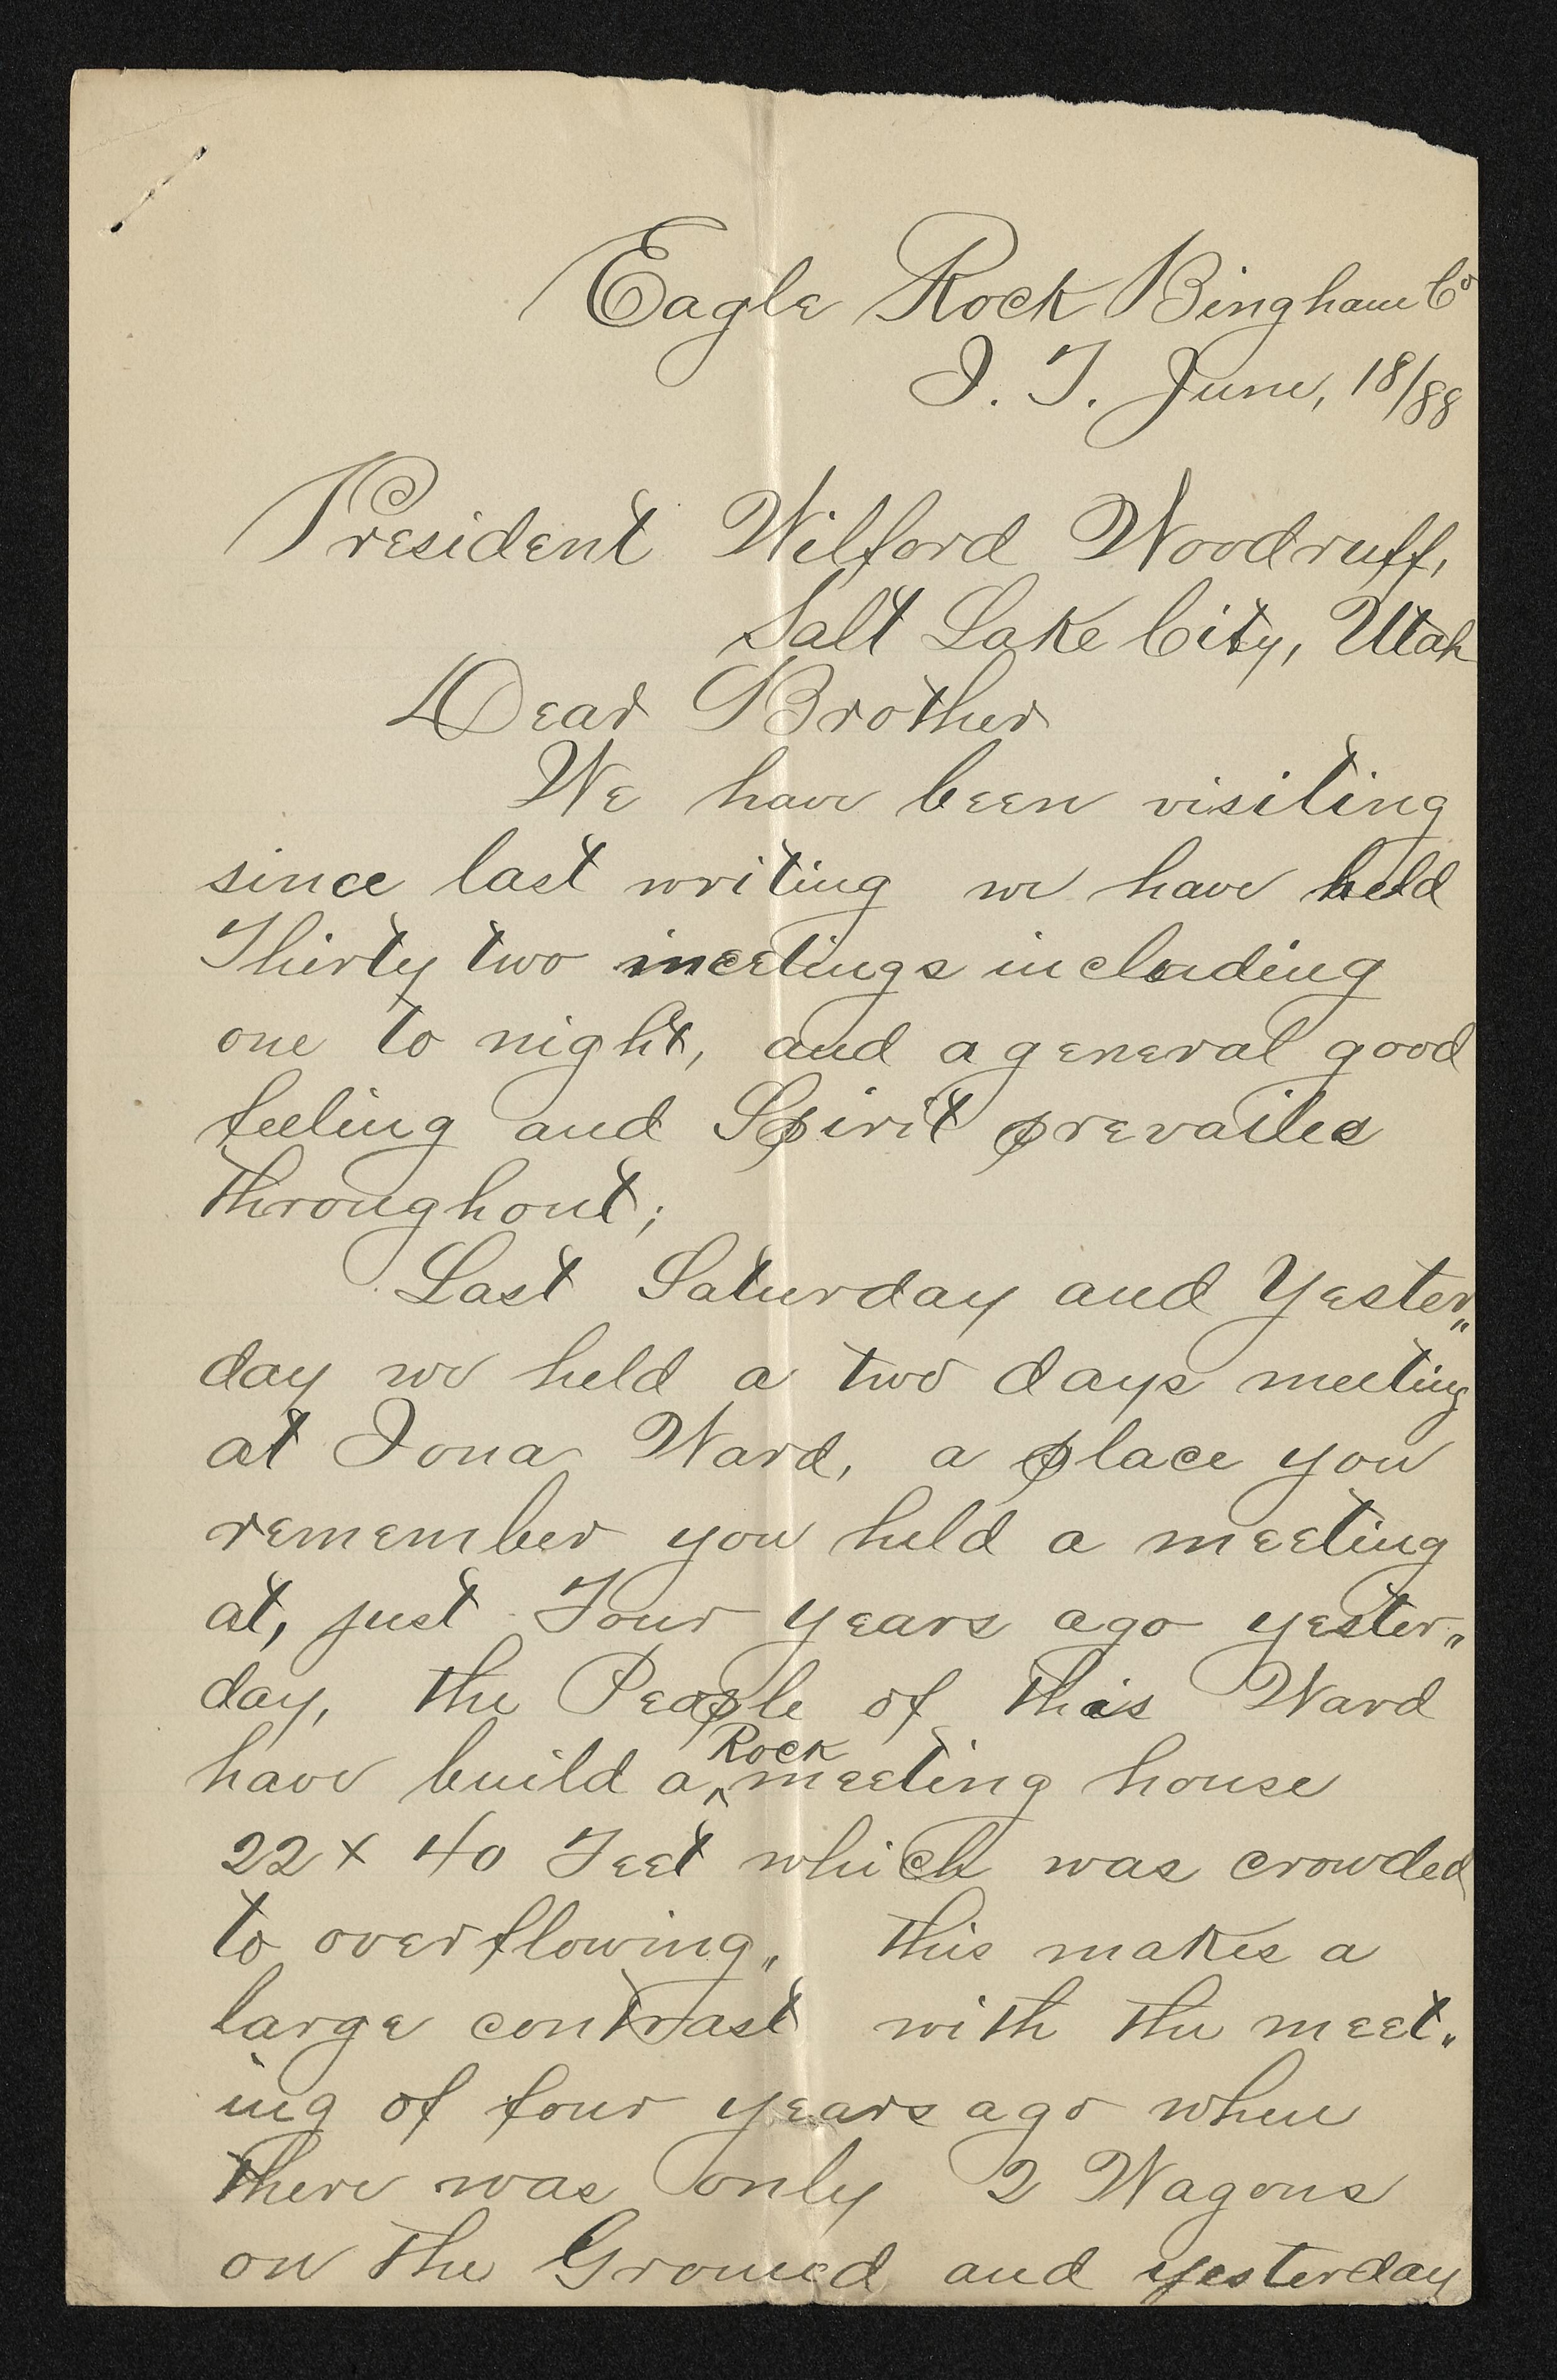 Eagle Rock Bingham Co
I. T. June, 18/88
President Wilford Woodruff,
Salt Lake City, Utah
Dear Brother
We have been visiting
since last writing we have held
Thirty two meetings including
one to night, and a general good
feeling and Spirit prevailes
throughout;
Last Saturday and Yester„
day we held a two days meeting
at Iona Ward, a place you
remember you held a meeting
at, just Four years ago yester„
day, the People of this Ward
have build a ^Rock meeting house
22 x 40 Feet which was crowded
to overflowing„ this makes a
large contrast with the meet„
ing of four years ago when
there was only 2 Wagons
on the Ground and yesterday